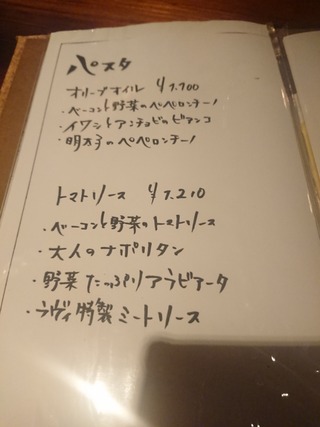 パスタ
オリーブオイル ¥1.100
・ベーコンと野菜のペペロンチーノ
・イワシとアンチョビのビアンコ
・明太子のペペロンチーノ
トマトソース ¥1.210
・ベーコンと野菜のトマトソース
・大人のナポリタン
・野菜たっぷりアラビアータ
・ラヴィ特製ミートソース